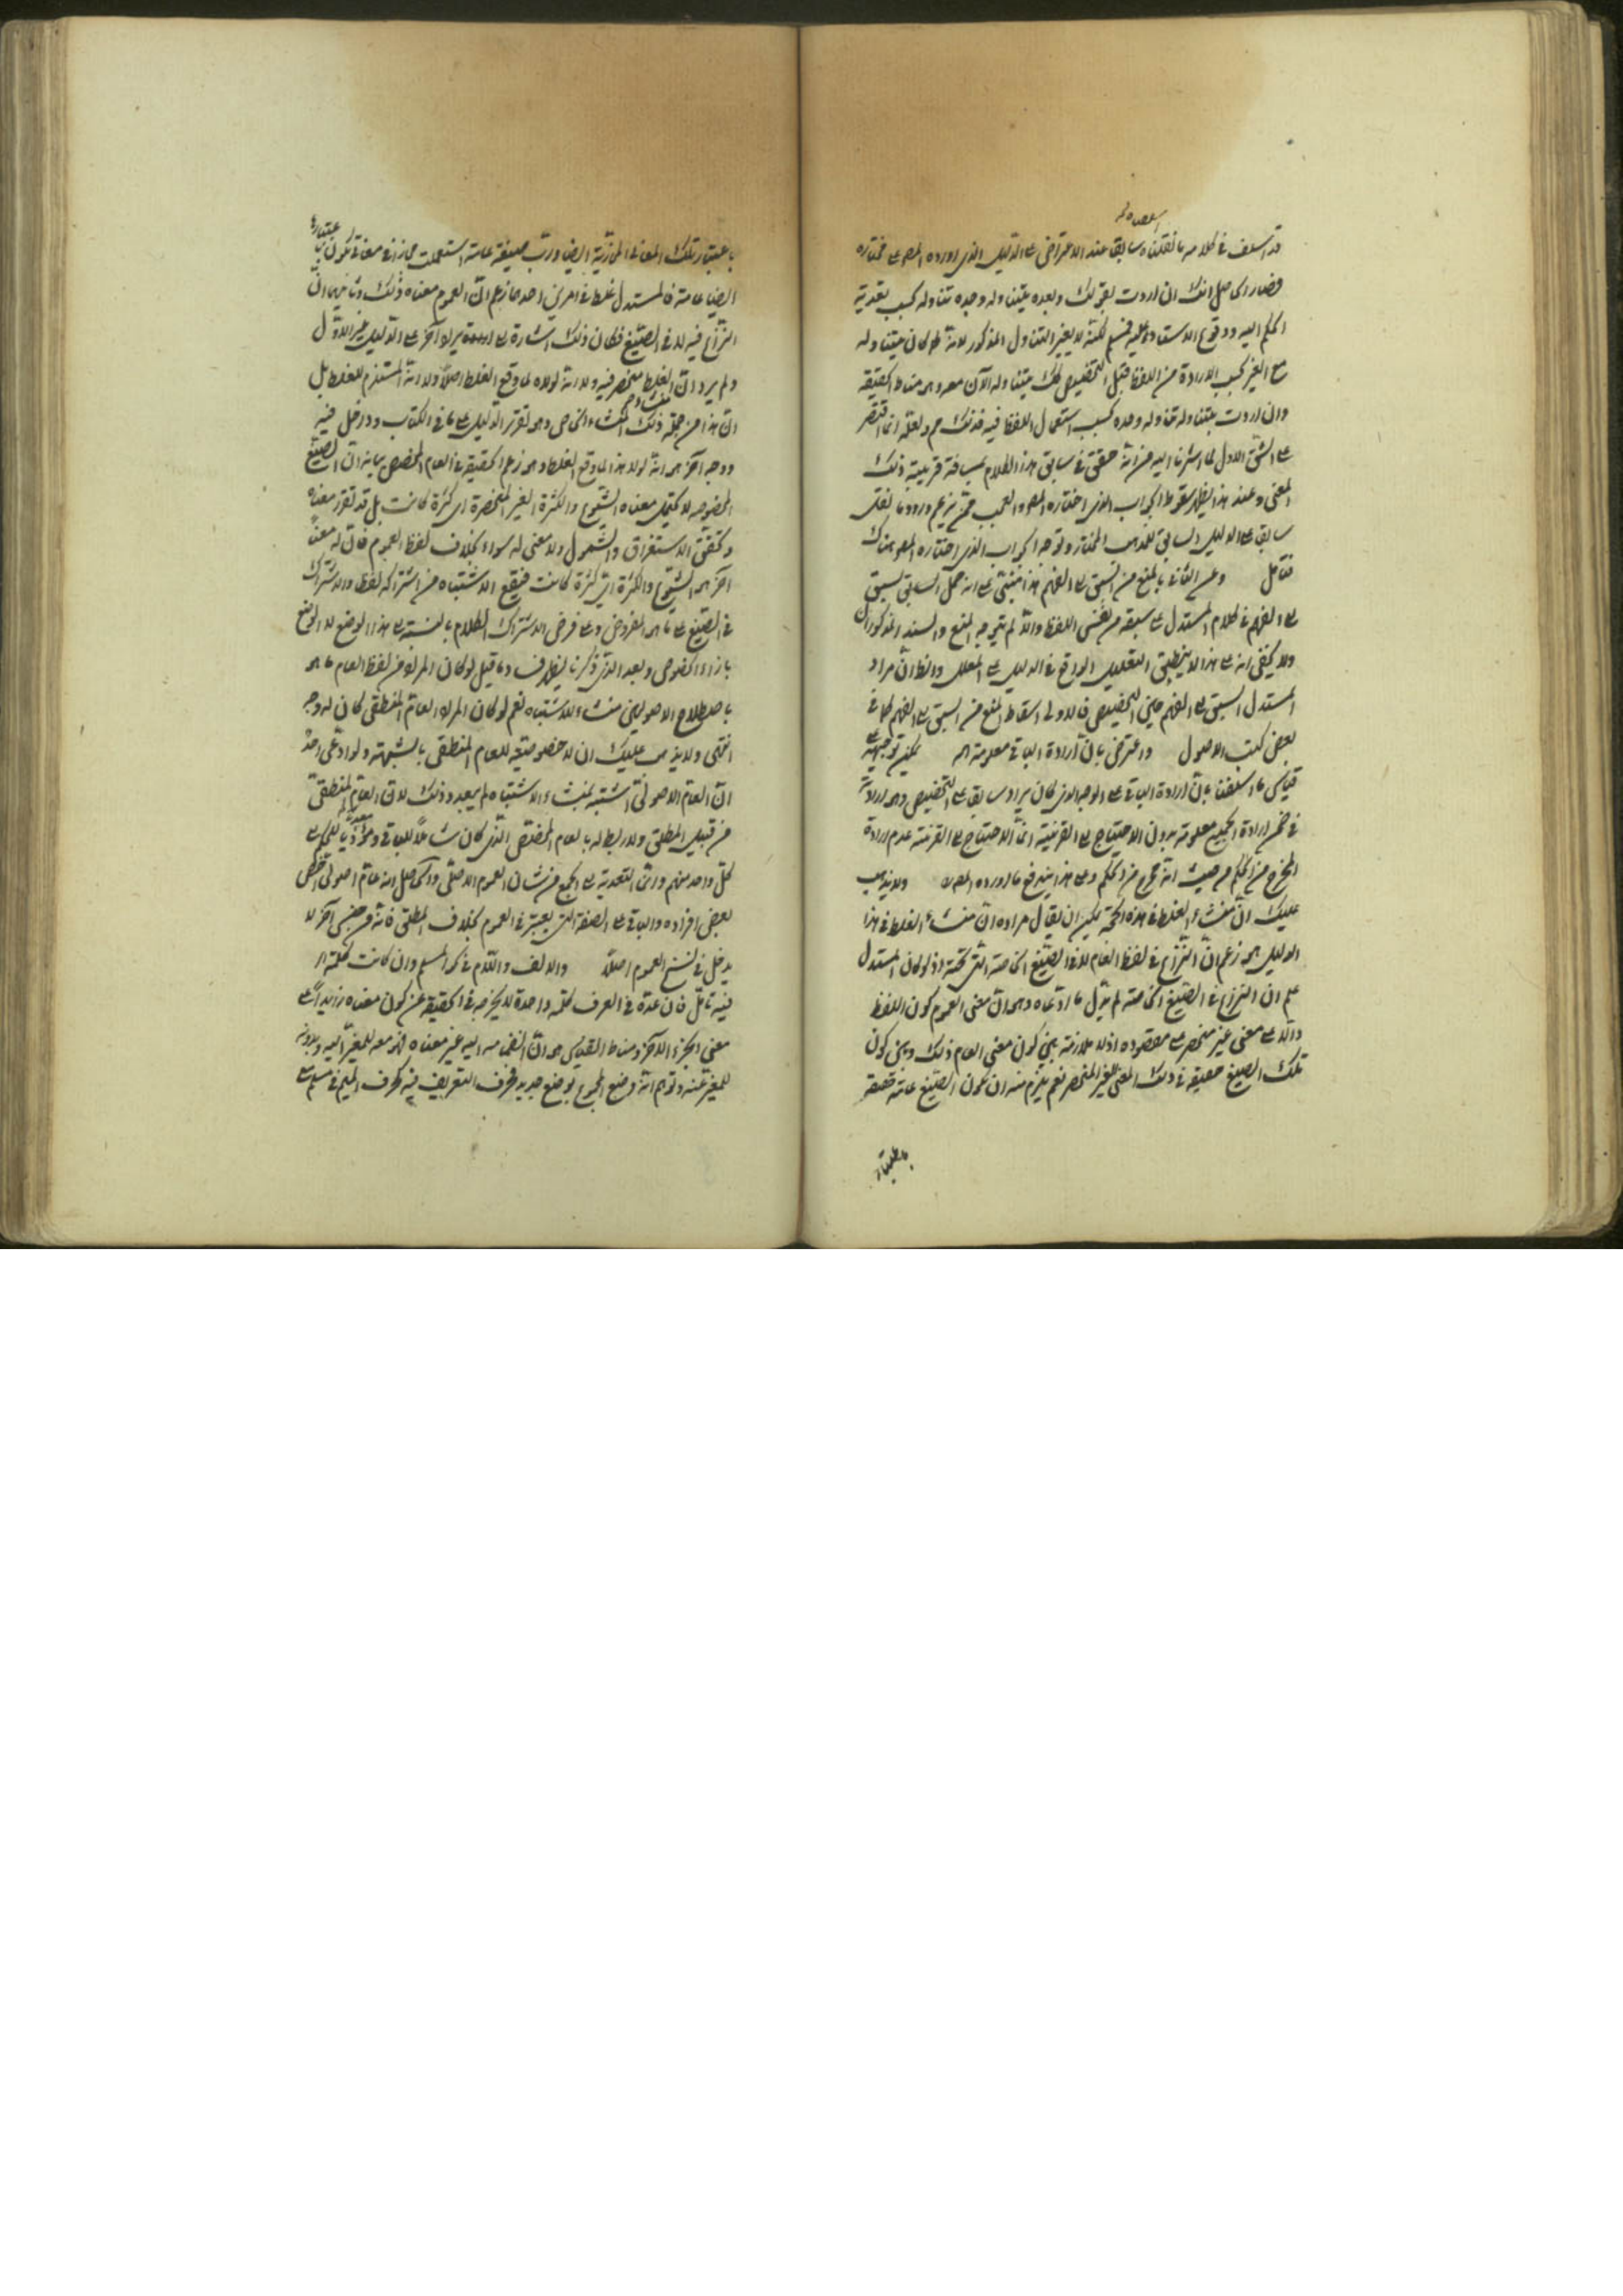 قد اسلف في كلامه ما نقلناه سابقا عند الاعتراض على الدليل الذي اورده المصـ على مختاره
فصار الحاصل انك ان اردت بقولك وبعده يتناوله وحده تناوله بحسب تعدية
الحكم اليه ووقوع الاسناد عليه فمسلم لكنه لا يغير التناول المذكور لانه كما كان يتناوله
مع الغير بحسب الارادة من اللفظ قبل التخصيص لك يتناوله الآن معه وهو مناط الحقيقة
وان اردت يتناوله تناوله وحده بحسب استعمال اللفظ فيه فذلك مم ولعله انما اقتصر
على الشق الاول لما اشرنا اليه من انه حقق في سابق هذا الكلام بمسافة قريبة ذلك
المعنى وعند هذا يظهر سقوط الجواب الذي اختاره المصـ والعجب ممن يزعم ورود ما نقل
سابقا على الدليل السابق للمذهب المختار وتوجه الجواب الذي اختاره المصـ هناك
فتأمل وعن الثاني بالمنع من السبق الى الفهم هذا مبني على انه حمل السابق لسبق
الى الفهم في كلام المستدل على سبقه من نفس اللفظ والا لم يتوجه المنع والسند المذكوران
ولا يخفى انه على هذا لا ينطبق التعليل الواقع في الدليل على المعلل والظ ان مراد
المستدل السبق الى الفهم حين التخصيص فالاولى اسقاط المنع من السبق الى الفهم كما في
بعض كتب الاصول واعترض بان ارادة الباقي معلومة اه يمكن توجيهه على
قياس ما اسلفنا بان ارادة الباقي على الوجه الذي كان يراد سابقا على التخصيص وهو ارادته
في ضمن ارادة الجميع معلومة بدون الاحتياج الى القرينة انما الاحتياج الى القرينة عدم ارادة
المخرج من الحكم من حيث انه مخرج من الحكم وعلى هذا يندفع ما اورده المصـ ولا يذهب
عليك ان منشاء الغلط في هذه الحجة يمكن ان يقال مراده ان منشاء الغلط في هذا
الدليل هو زعم ان النزاع في لفظ العام لا في الصيغ الخاصة التي تحته اذ لو كان المستدل
علم ان النزاع في الصيغ الخاصة لم يدل ما ادعاه وهو ان معنى العموم كون اللفظ
دالا على معنى غير منحصر على مقصوده اذ لا ملازمة بين كون معنى العام ذلك وبين كون
تلك الصيغ حقيقة في ذلك المعنى الغير المنحصر نعم يلزم منه ان يكون الصيغ عامة حقيقة
باعتبار
باعتبار تلك المعاني المجازية ايضا ورب صيغة عامة استعملت مجازا في معنى يكون باعتباره
ايضا عامة فالمستدل غلط في امرين احدهما زعم ان العموم معناه ذلك وثانيهما ان
النزاع فيه لا في الصيغ فكان ذلك اشارة الى ايراد آخر على الدليل غير الاول
ولم يرد ان الغلط منحصر فيه ولا انه لولاه لما وقع الغلط اصلا ولا انه المستلزم للغلط بل
ان هذا من جملة ذلك المنشاء الخاص وهو تقرير الدليل على ما في الكتاب وداخل فيه
ووجه آخر هو انه لولا هذا لما وقع الغلط وهو زعم الحقيقة في العام المخصص بيانه ان الصيغ
المخصوصه لا يحتمل معناه الشيوع والكثرة الغير المنحصرة اي كثرة كانت بل قد تقرر معناه
وتحقق الاستغراق والشمول ولا معنى له سواه بخلاف لفظ العموم فان له معنى
آخر هو الشيوع والكثرة اي كثرة كانت فيقع الاشتباه من اشتراكه لفظا والاشتراك
في الصيغ على ما هو المفروض وعلى فرض الاشتراك الكلام بالنسبة الى هذا الوضع لا الوضع
بازاء الخصوص وبعد الذي ذكرنا يظهر ضعف وما قيل لو كان المراد من لفظ العام ما هو
باصطلاح الاصوليين منشاء للاشتباه نعم لو كان المراد العام المنطقي كان له وجه
انتهى ولا يذهب عليك ان لا خصوصية للعام المنطقي بالشبهة ولو ادعى احد
ان العام الاصولي اشتبه بمنشاء الاشتباه لم يبعد وذلك لان العام المنطقي
من قبيل المطلق ولا ربط له بالعام المخصص الذي كان شاملا للباقي ومؤديا للحكم على
كل واحد منهم وان التعدية الى الجمع من شان العموم الاصلي والحاصل انه عام اصولي اختص
بعض افراده والباقي على الصفة التي يعتبر في العموم بخلاف المطلق فانه من جنس آخر لا
يدخل في نسخ العموم اصلا والالف واللام في نحو المسلم وان كانت كلمة اه
فيه تأمل فان عده في العرف كلمة واحدة لا يخرجه في الحقيقة عن كون معناه زايدا على
معنى الجزء الآخر ومناط القياس هو ان انضمامه اليه غير معناه فهو معه للمغير اليه وبدونه
للمغير عنه وتوهم انه وضع المجموع بوضع جديد فحرف التعريف فيه كحرف الميم في مسلم على